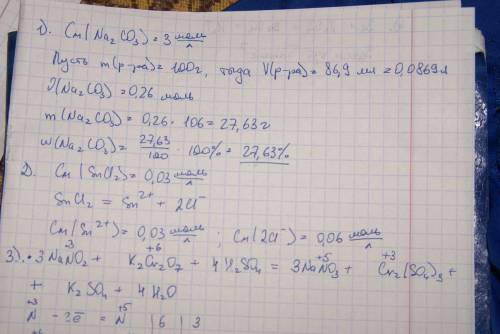 1). Cм(Na₂CO₃) = 3 моль/л
Пусть m(р-ра) = 100г, тогда V(р-ра) = 86,9 мл = 0,0869 л
ν(Na₂CO₃) = 0,26 моль
m(Na₂CO₃) = 0,26 · 106 = 27,63 г
w(Na₂CO₃) = 27,63/100 · 100% = 27,63%
2). Cм(SnCl₂) = 0,03 моль/л
SnCl₂ = Sn²⁺ + 2Cl⁻
Cм(Sn²⁺) = 0,03 моль/л ; Cм(2Cl⁻) = 0,06 моль/л
+3 +6 +5 +3
3). · 3NaNO₂ + K₂Cr₂O₇ + 4H₂SO₄ = 3NaNO₃ + Cr₂(SO₄)₃ +
+ K₂SO₄ + 4H₂O
N⁺³ - 2e̅ = N⁺⁵ | 6 | 3